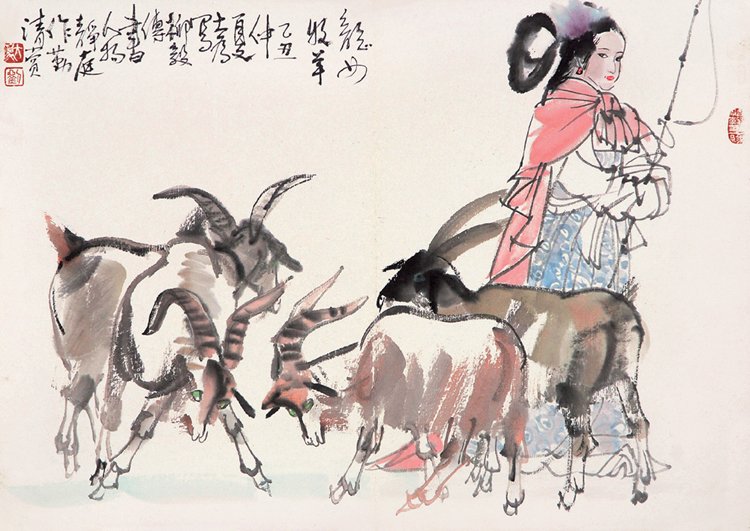 龍女
牧羊
乙丑
仲
夏
寫
柳毅
傳
書
人物
靜庭
作勤
清賞